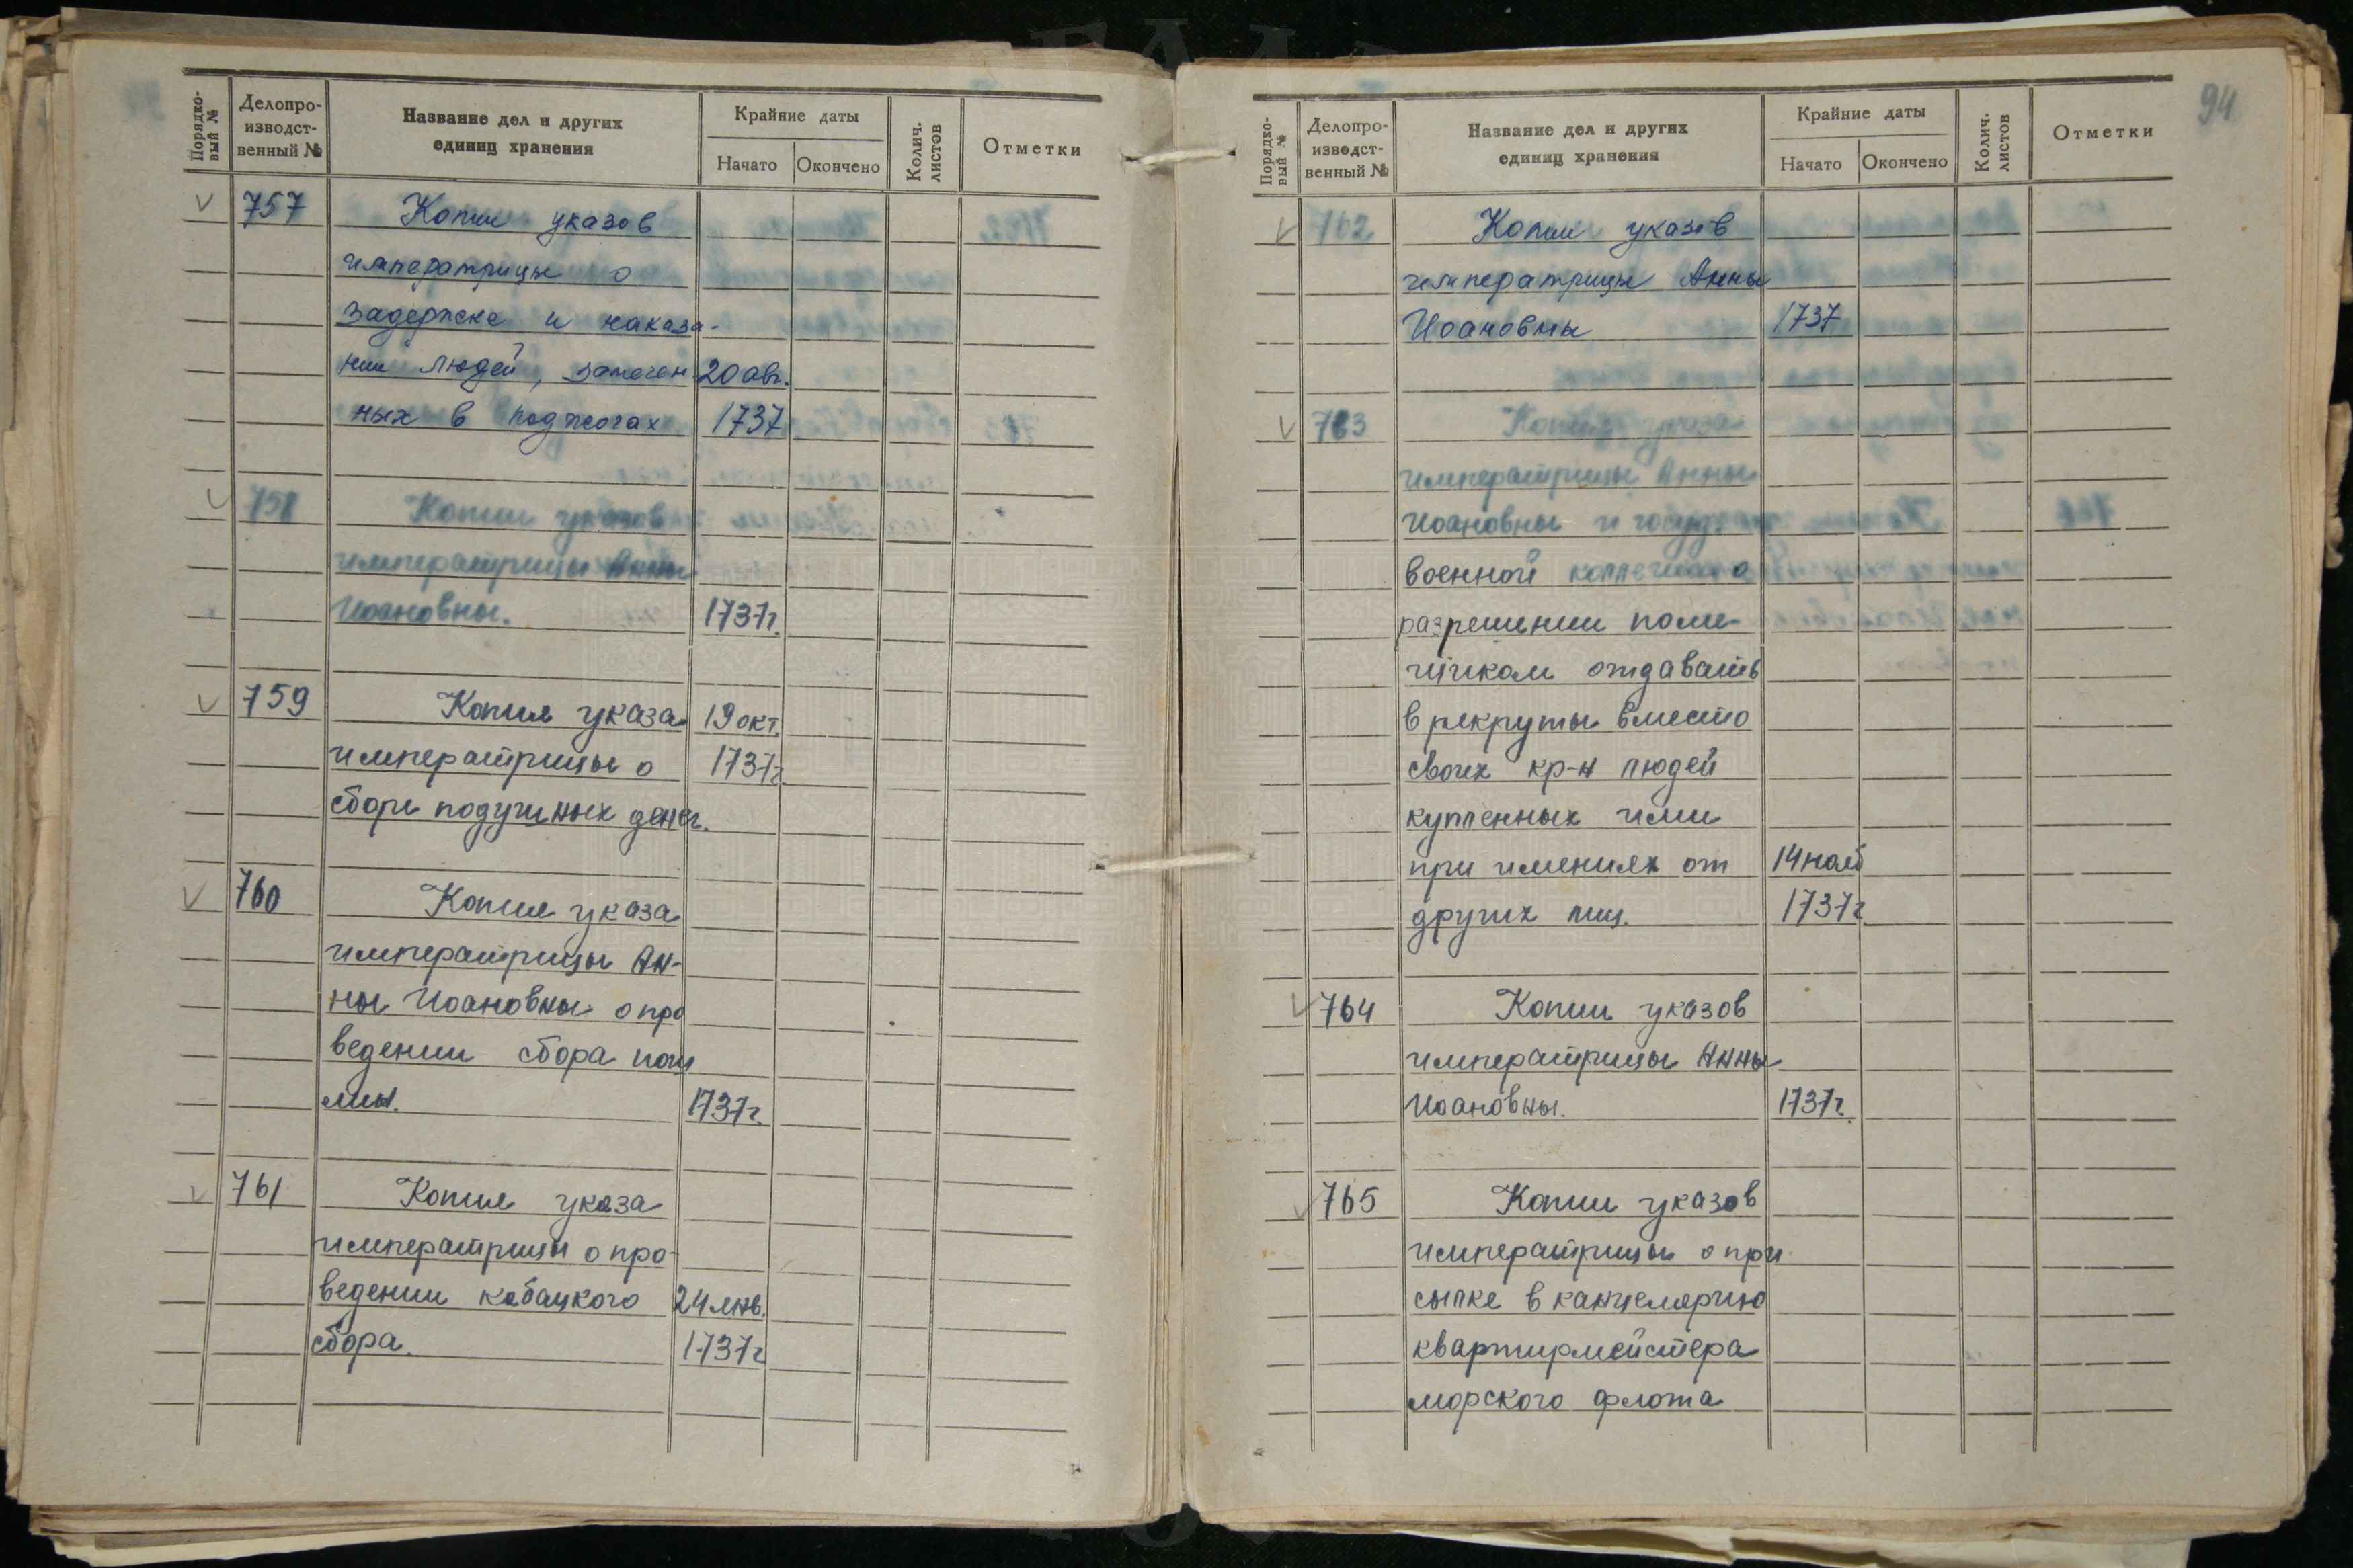 94
Порядко-
вый №
Делопро-
изводст-
венный №
Название дел и других
единиц хранения
Крайние даты
Начато
Окончено
Колич.
листов
Отметки
757 Копии указов
императрицы о
задержке и наказа-
нии людей, замечен-
20 авг.
ных в поджогах 1737
758 Копии указов
императрицы Анны
Иоановны. 1737г.
759 Копия указа 19 окт.
императрицы о 1737г
сборе подушных денег.
760 Копия указа
императрицы Ан-
ны Иоановны о про
ведении сбора пош
лин. 1737г.
761 Копия указа
императрицы о про-
ведении кабацкого 24 янв.
сбора. 1737г
Порядко-
вый №
Делопро-
изводст-
венный №
Название дел и других
единиц хранения
Крайние даты
Начато
Окончено
Колич.
листов
Отметки
762 Копии указов
императрицы Анны
Иоановны 1737
763 Копия указа
императрицы Анны
Иоановны и
военной коллегии о
разрешении поме-
щикам отдавать
в рекруты вместо
своих кр-н людей
купленных ими
при имениях от 14 нояб
других лиц. 1737г
764 Копии указов
императрицы Анны
Иоановны. 1737г.
765 Копии указов
императрицы о при
сылке в канцелярию
квартирмейстера
морского флота